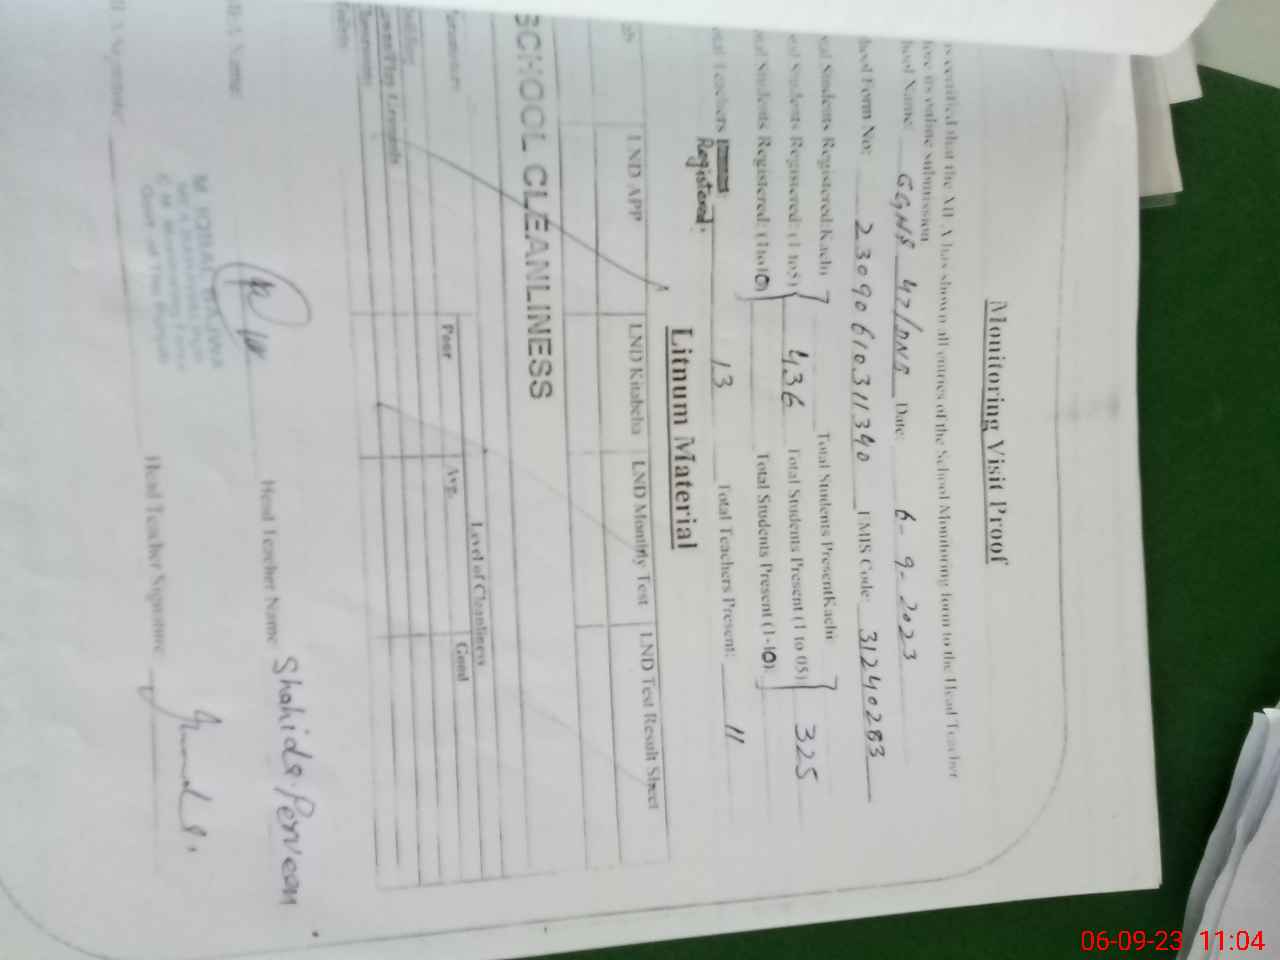 Monitoring Visit Proof
certified that the MEA has shown all entries of the School Monitoring form to the Head Teacher
its online submission
Name: GGHS 47/DNB Date: 6-9-2023
Form No: 23090610311340 EMIS Code: 31240283
Students Registered Kachi Total Students PresentKachi
Students Registered: (1 to 5) 436 Total Students Present (1 to 05) 325
Students Registered: (1to10) Total Students Present (1-10):
Teachers Registered: 13 Total Teachers Present: 11
Litnum Material
LND APP LND Kitabcha LND Monthly Test LND Test Result Sheet
SCHOOL CLEANLINESS
Level of Cleanliness
Poor Avg. Good
Name: Head Teacher Name Shahida Perveen
Signature: Head Teacher Signature
06-09-23 11:04